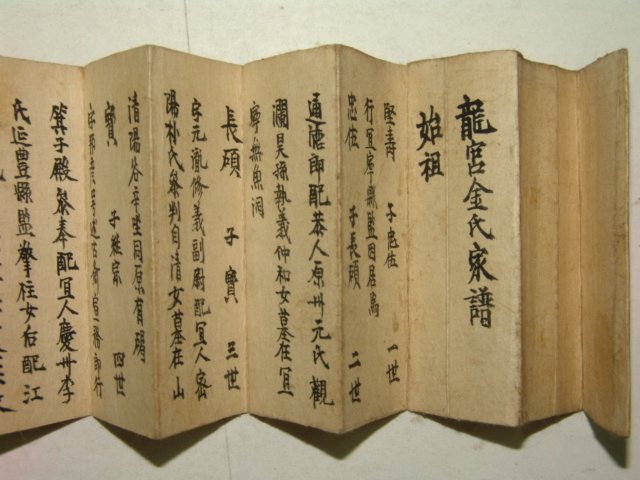 龍宮金氏家譜
始祖
堅壽 子忠佐 一世
行宜寧縣監因居焉
忠佐 子長碩 二世
通德郎配恭人原州元氏觀
瀾昊孫執義仲和女墓在宜
寧無魚洞
長碩 子寶 三世
字元瀜修義副尉配宜人密
陽朴氏參判自清女墓在山
清陽谷辛坐同原有碣
寶 子 四世
箕子殿參奉配宜人慶州李
氏延豊縣監擎柱女后配江